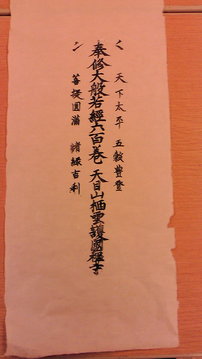 天下太平 五穀豊登
奉修大般若經六百巻 天目山栖雲護國禅寺
菩提圓滿 諸縁吉利